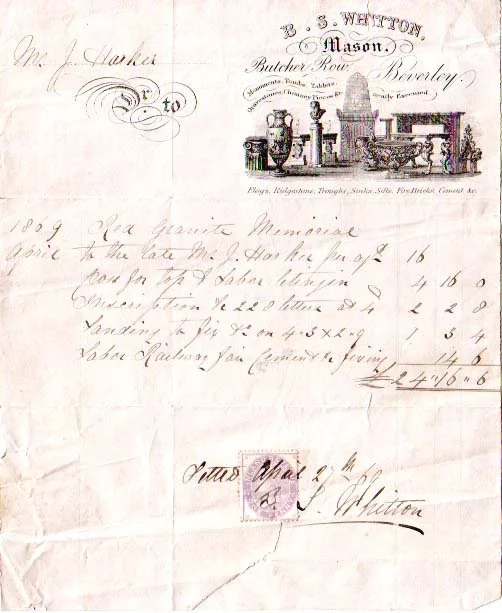 B. S. WHITTON,
Mason.
Butcher Row, Beverley.
Monuments, Tombs, Tablets,
Gravestones, Chimney Pieces &c. neatly Executed
Flags, Ridgestone, Troughs, Sinks, Sills, Fire Bricks, Cement &c.
Mr. J. Harker
Dr. to
1869 Red Granite Memorial
April to the late Mr J. Harker per agt 16
for top & Labor 4 16 0
Inscription &c 228 letters at 4 2 2 8
Landing to fix &c on 4·3 x 2·9 1 3 4
Labor Railway fare Cement & fixing 14 6
£ 24 " 16 " 6
Settled April 27th 69
S. Whitton